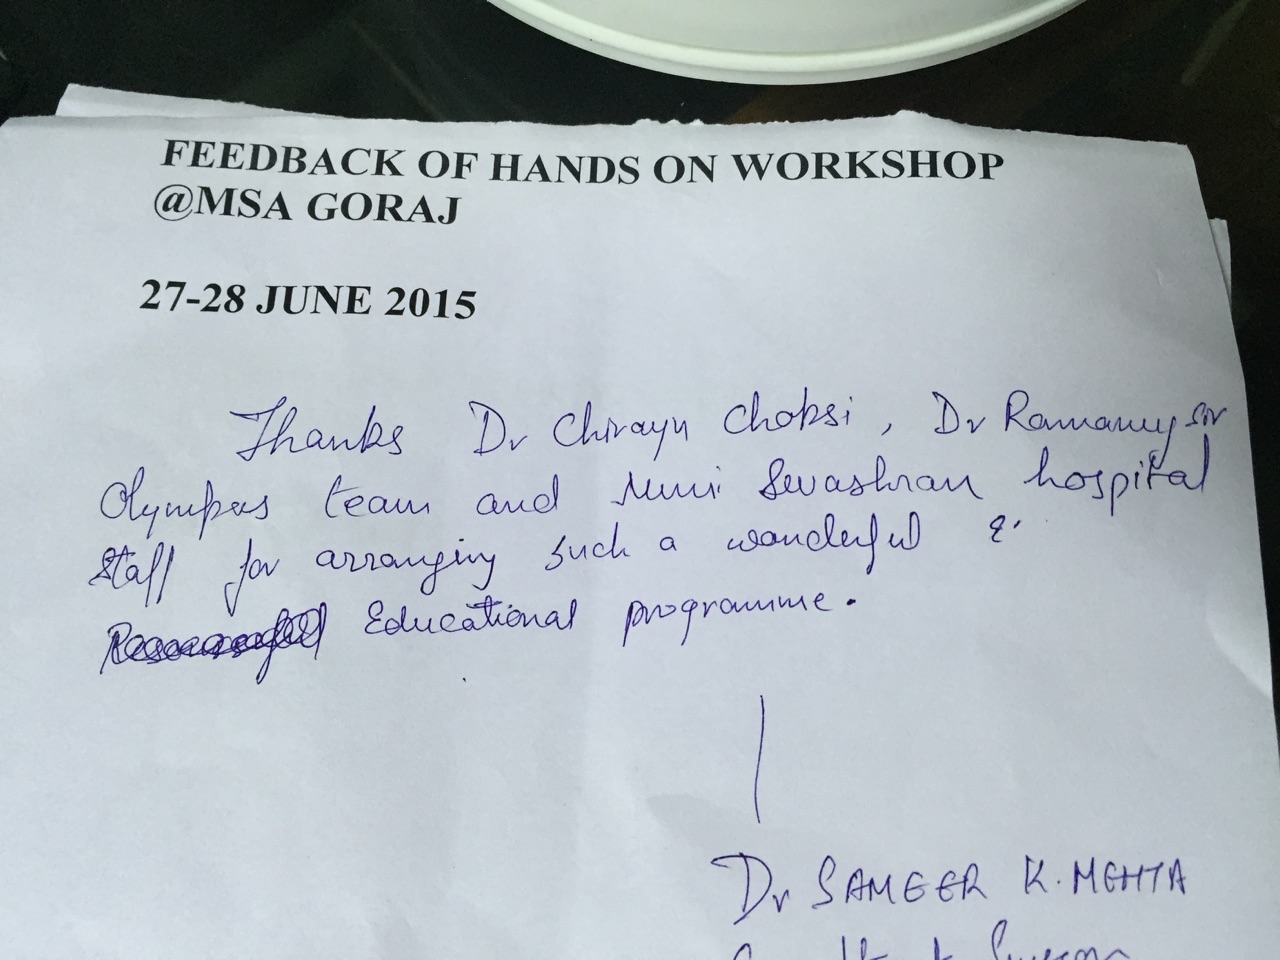 FEEDBACK OF HANDS ON WORKSHOP
@MSA GORAJ
27-28 JUNE 2015
Thanks Dr Chirayu Choksi, Dr Ramanuj sir
Olympus team and Muni Sevashram hospital
Staff for arranging such a wonderful &
Educational programme.
Dr SAMEER K. MEHTA